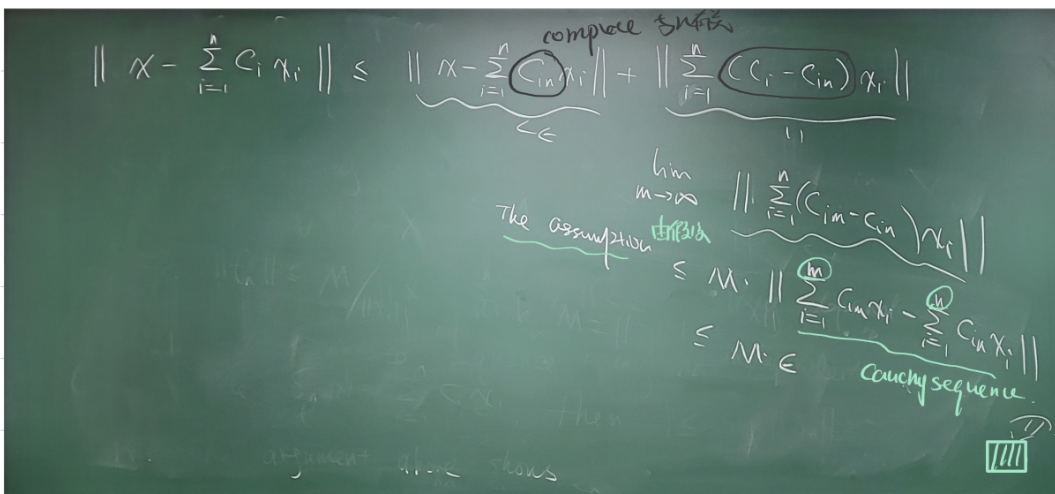 complete
‖ x - ∑_{i=1}^{n} C_i x_i ‖ ≤ ‖ x - ∑_{i=1}^{n} C_{in} x_i ‖ + ‖ ∑_{i=1}^{n} (C_i - C_{in}) x_i ‖
< ε
||
lim_{m→∞} ‖ ∑_{i=1}^{n} (C_{im} - C_{in}) x_i ‖
The assumption
≤ M · ‖ ∑_{i=1}^{m} C_{im} x_i - ∑_{i=1}^{n} C_{in} x_i ‖
≤ M · ε
Cauchy sequence.
then
argument above shows